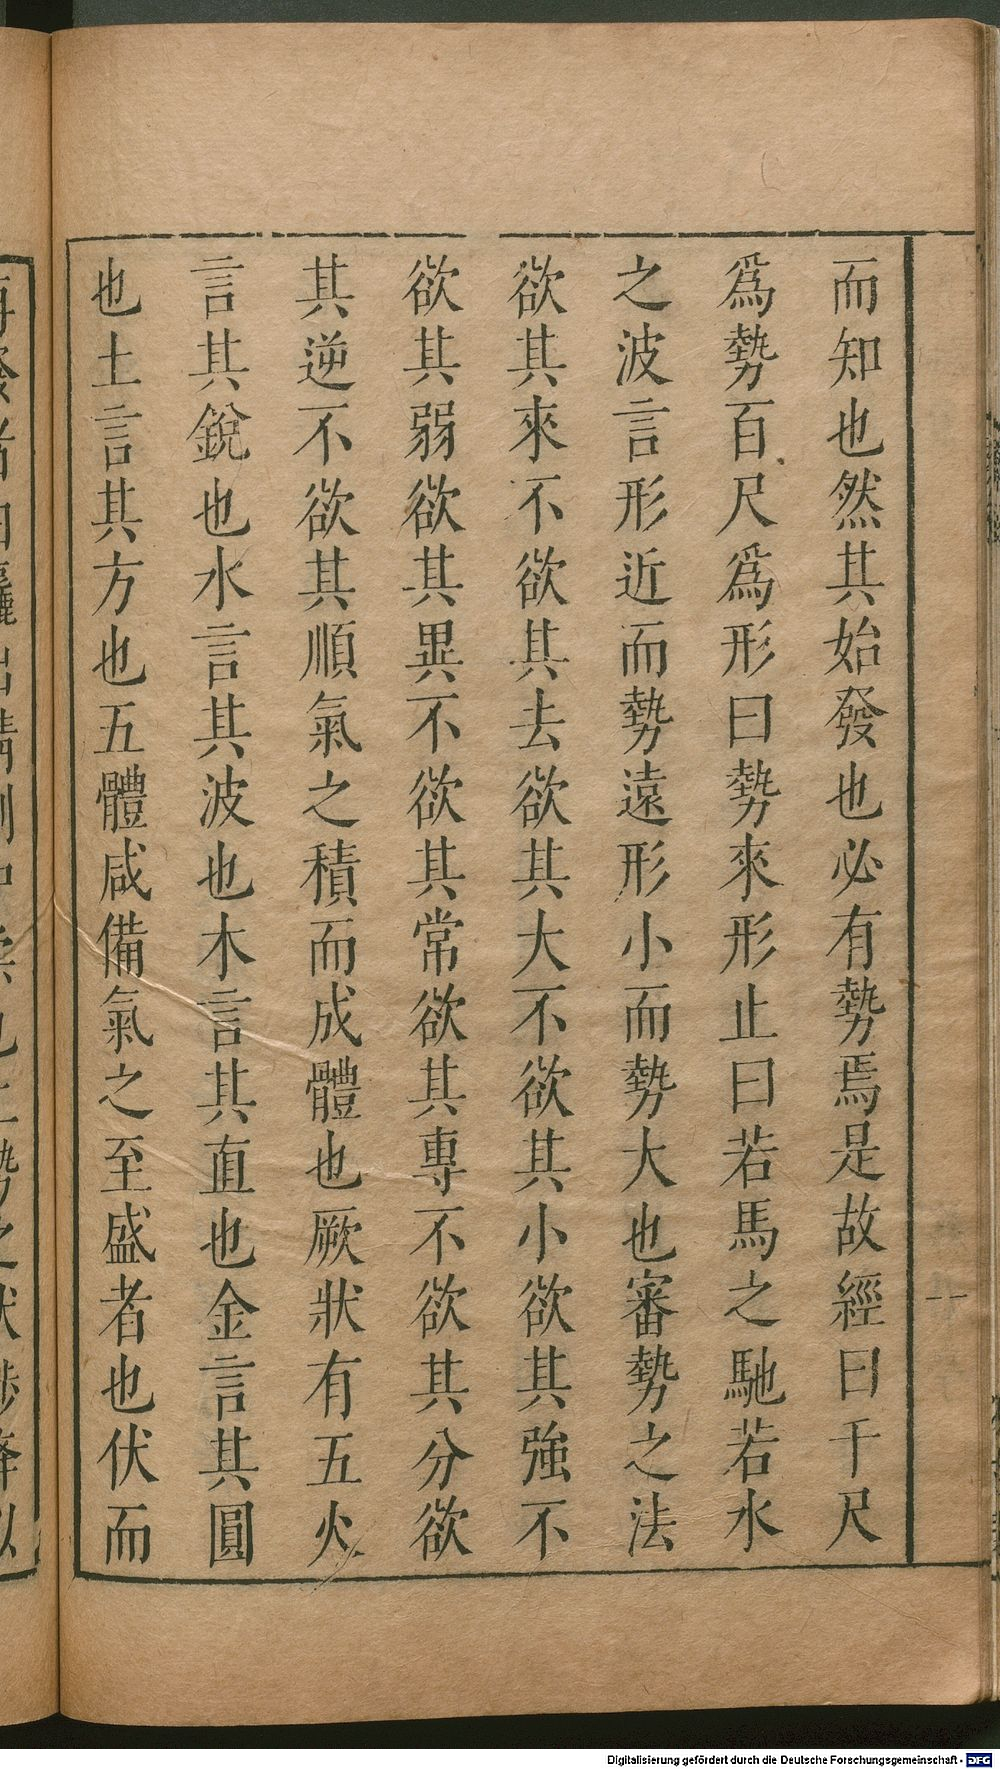 而知也然其始發也必有勢焉是故經曰千尺
爲勢百尺爲形曰勢來形止曰若馬之馳若水
之波言形近而勢遠形小而勢大也審勢之法
欲其來不欲其去欲其大不欲其小欲其強不
欲其弱欲其異不欲其常欲其專不欲其分欲
其逆不欲其順氣之積而成體也厥狀有五火
言其銳也水言其波也木言其直也金言其圓
也土言其方也五體咸備氣之至盛者也伏而
Digitalisierung gefördert durch die Deutsche Forschungsgemeinschaft - DFG